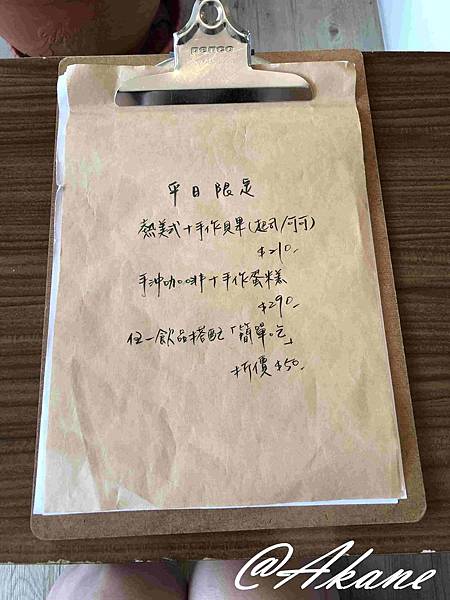 penco
平日限定
熱美式+手作貝果(起司/可可)
$210.-
手沖咖啡+手作蛋糕
$290.-
任一飲品搭配「簡單吃」
折價$50.-
@Akane